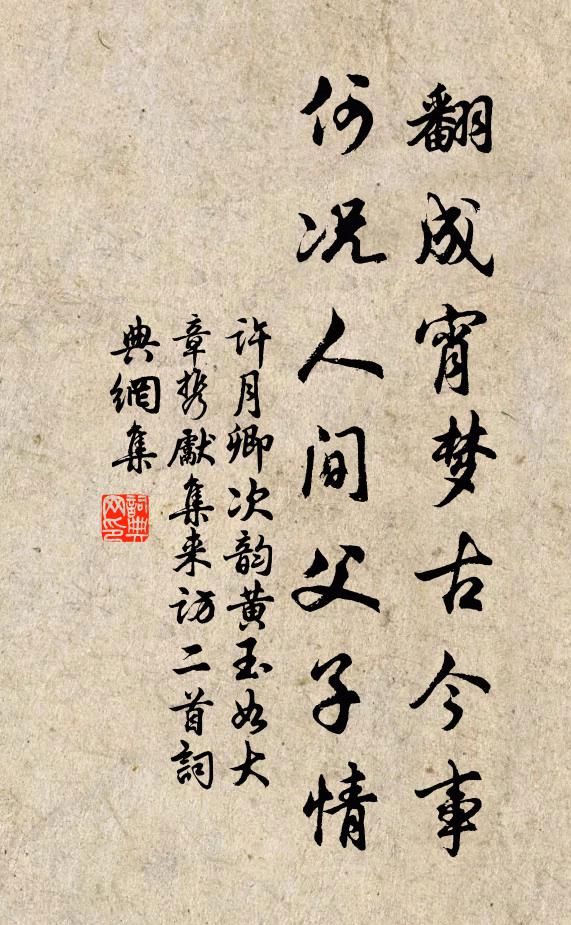 翻成宵梦古今事
何况人间父子情
许月卿次韵黄玉如大
章携獻集来访二首詞
典網集
詞典网印